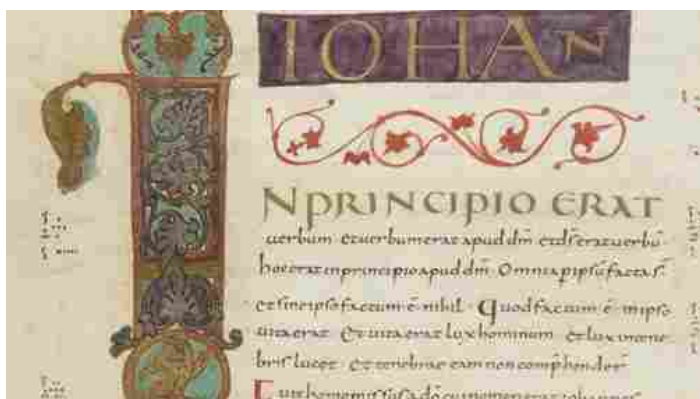 IOHAN
IN PRINCIPIO ERAT
uerbum et uerbum erat apud dm̄ et ds̄ erat uerbū
hoc erat in principio apud dm̄ Omnia p ipsū facta sꝉ
et sine ipso factum ē nihil Quod factum ē in ipso
uita erat Et uita erat lux hominum et lux in tene
bris lucet et tenebrae eam non comp̄henderꝉ
Fuit homo missus a dō cui nomen erat iohannes